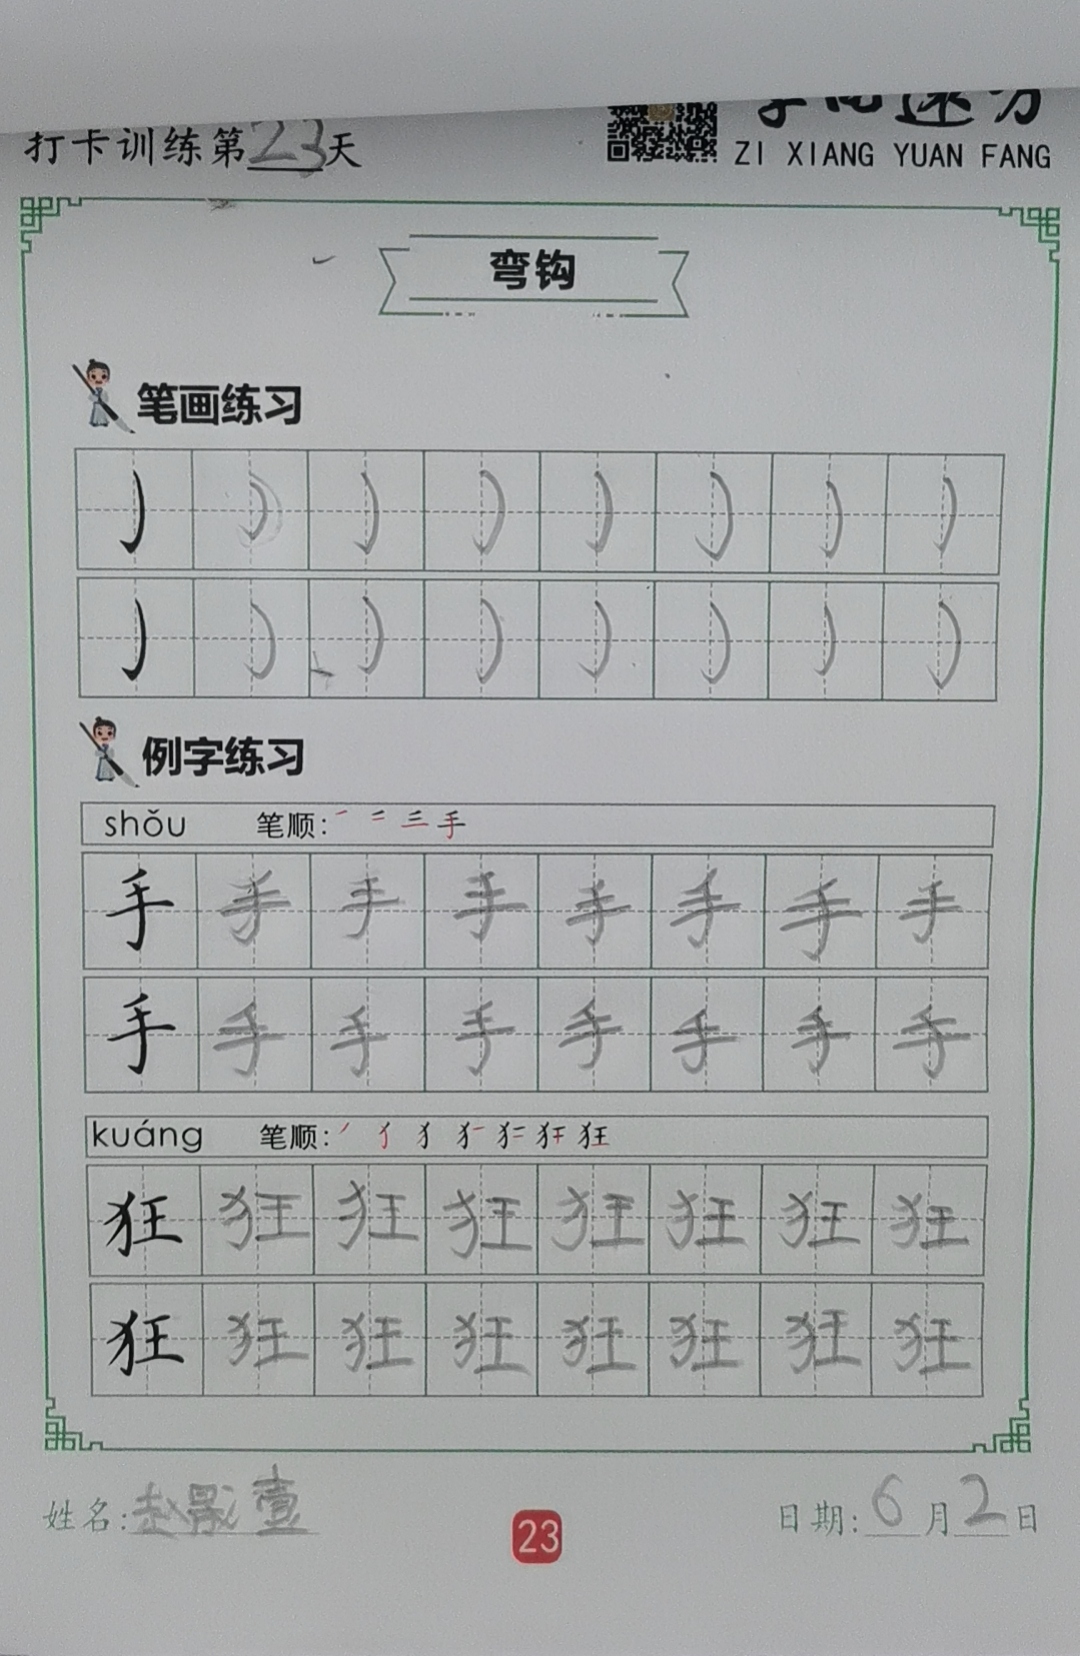 打卡训练第23天
ZI XIANG YUAN FANG
弯钩
笔画练习
例字练习
shǒu 笔顺: 手
手 手 手 手 手 手 手 手
手 手 手 手 手 手 手 手
kuáng 笔顺: 狂
狂 狂 狂 狂 狂 狂 狂 狂
狂 狂 狂 狂 狂 狂 狂 狂
姓名: 赵 壹
23
日期: 6月2日